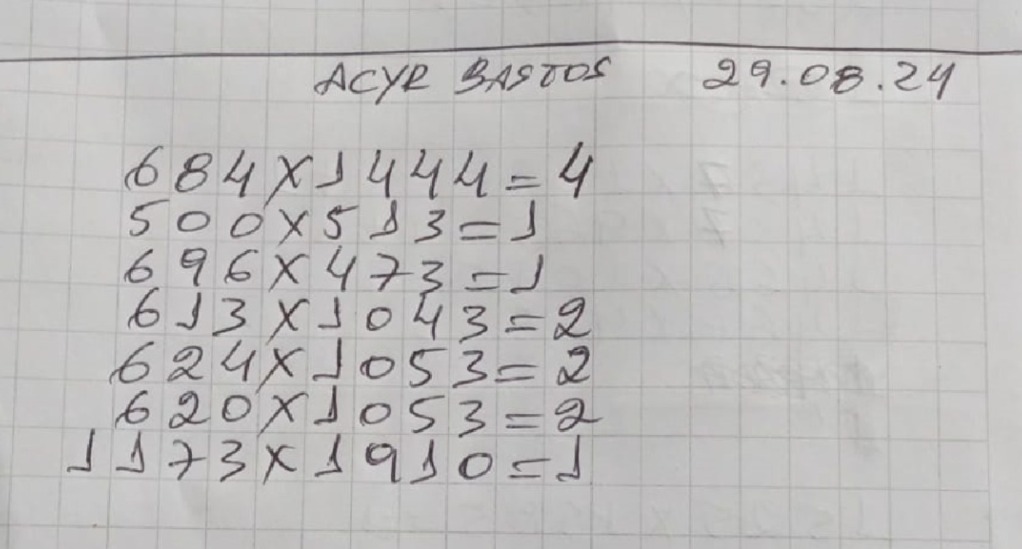 ACYR BASTOS 29.08.24
684X1444=4
500X513=1
696X473=1
613X1043=2
624X1053=2
620X1053=2
1173X1910=1